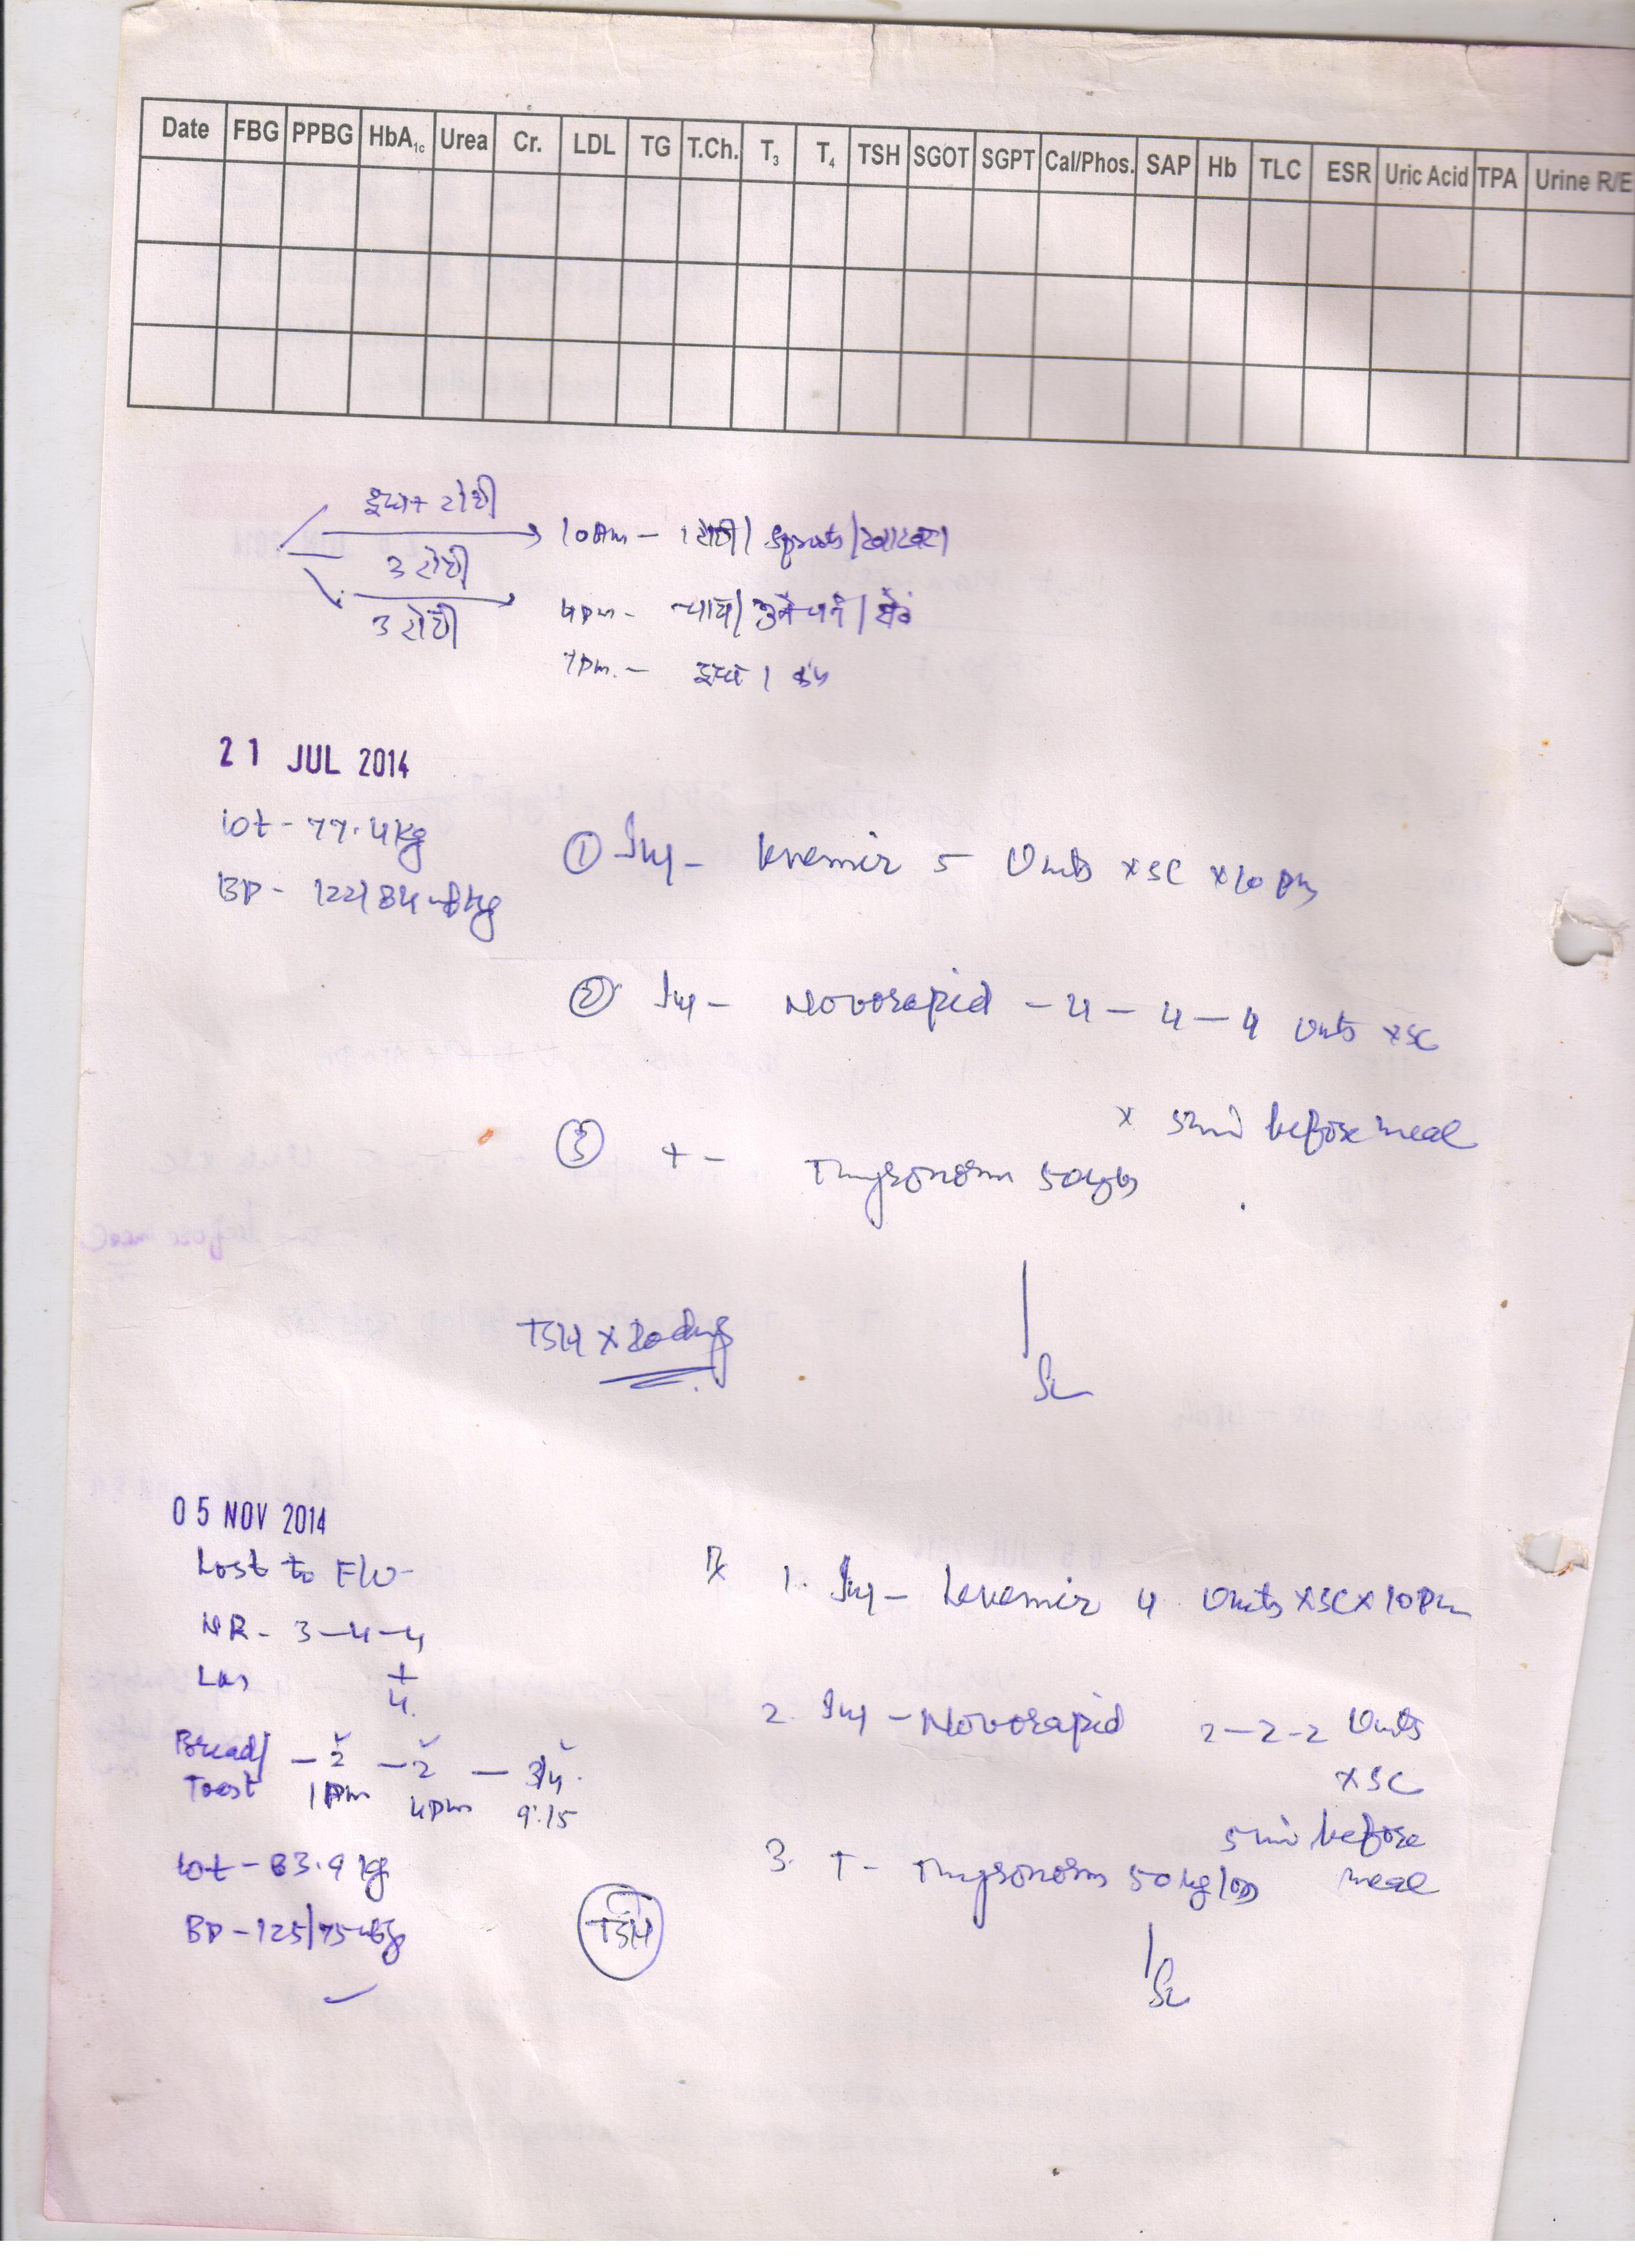 Date FBG PPBG HbA1c Urea Cr. LDL TG T.Ch. T3 T4 TSH SGOT SGPT Cal/Phos. SAP Hb TLC ESR Uric Acid TPA Urine R/E
दूध+ रोटी
3 रोटी
3 रोटी
10Am – 1 रोटी / Sprouts /
4pm – चाय / भुने चने /
7pm. – दूध 1 कप
21 JUL 2014
wt - 77.4kg
BP - 122/84
① Inj - Levemir 5 Units x SC x 10 pm
② Inj - Novorapid - 4 - 4 - 4 Units x SC
x 5min before meal
③ T - Thyronorm 50
TSH x
05 NOV 2014
Lost to F/U-
NR - 3-4-4
4
Bread/ Toast - 2 - 2 - 3/4
1pm 4pm 9.15
wt - 83.9 kg
BP - 125/75
TSH
Rx 1. Inj - Levemir 4 Units x SC x 10pm
2. Inj - Novorapid 2-2-2 Units
x SC
5min before
meal
3. T - Thyronorm 50